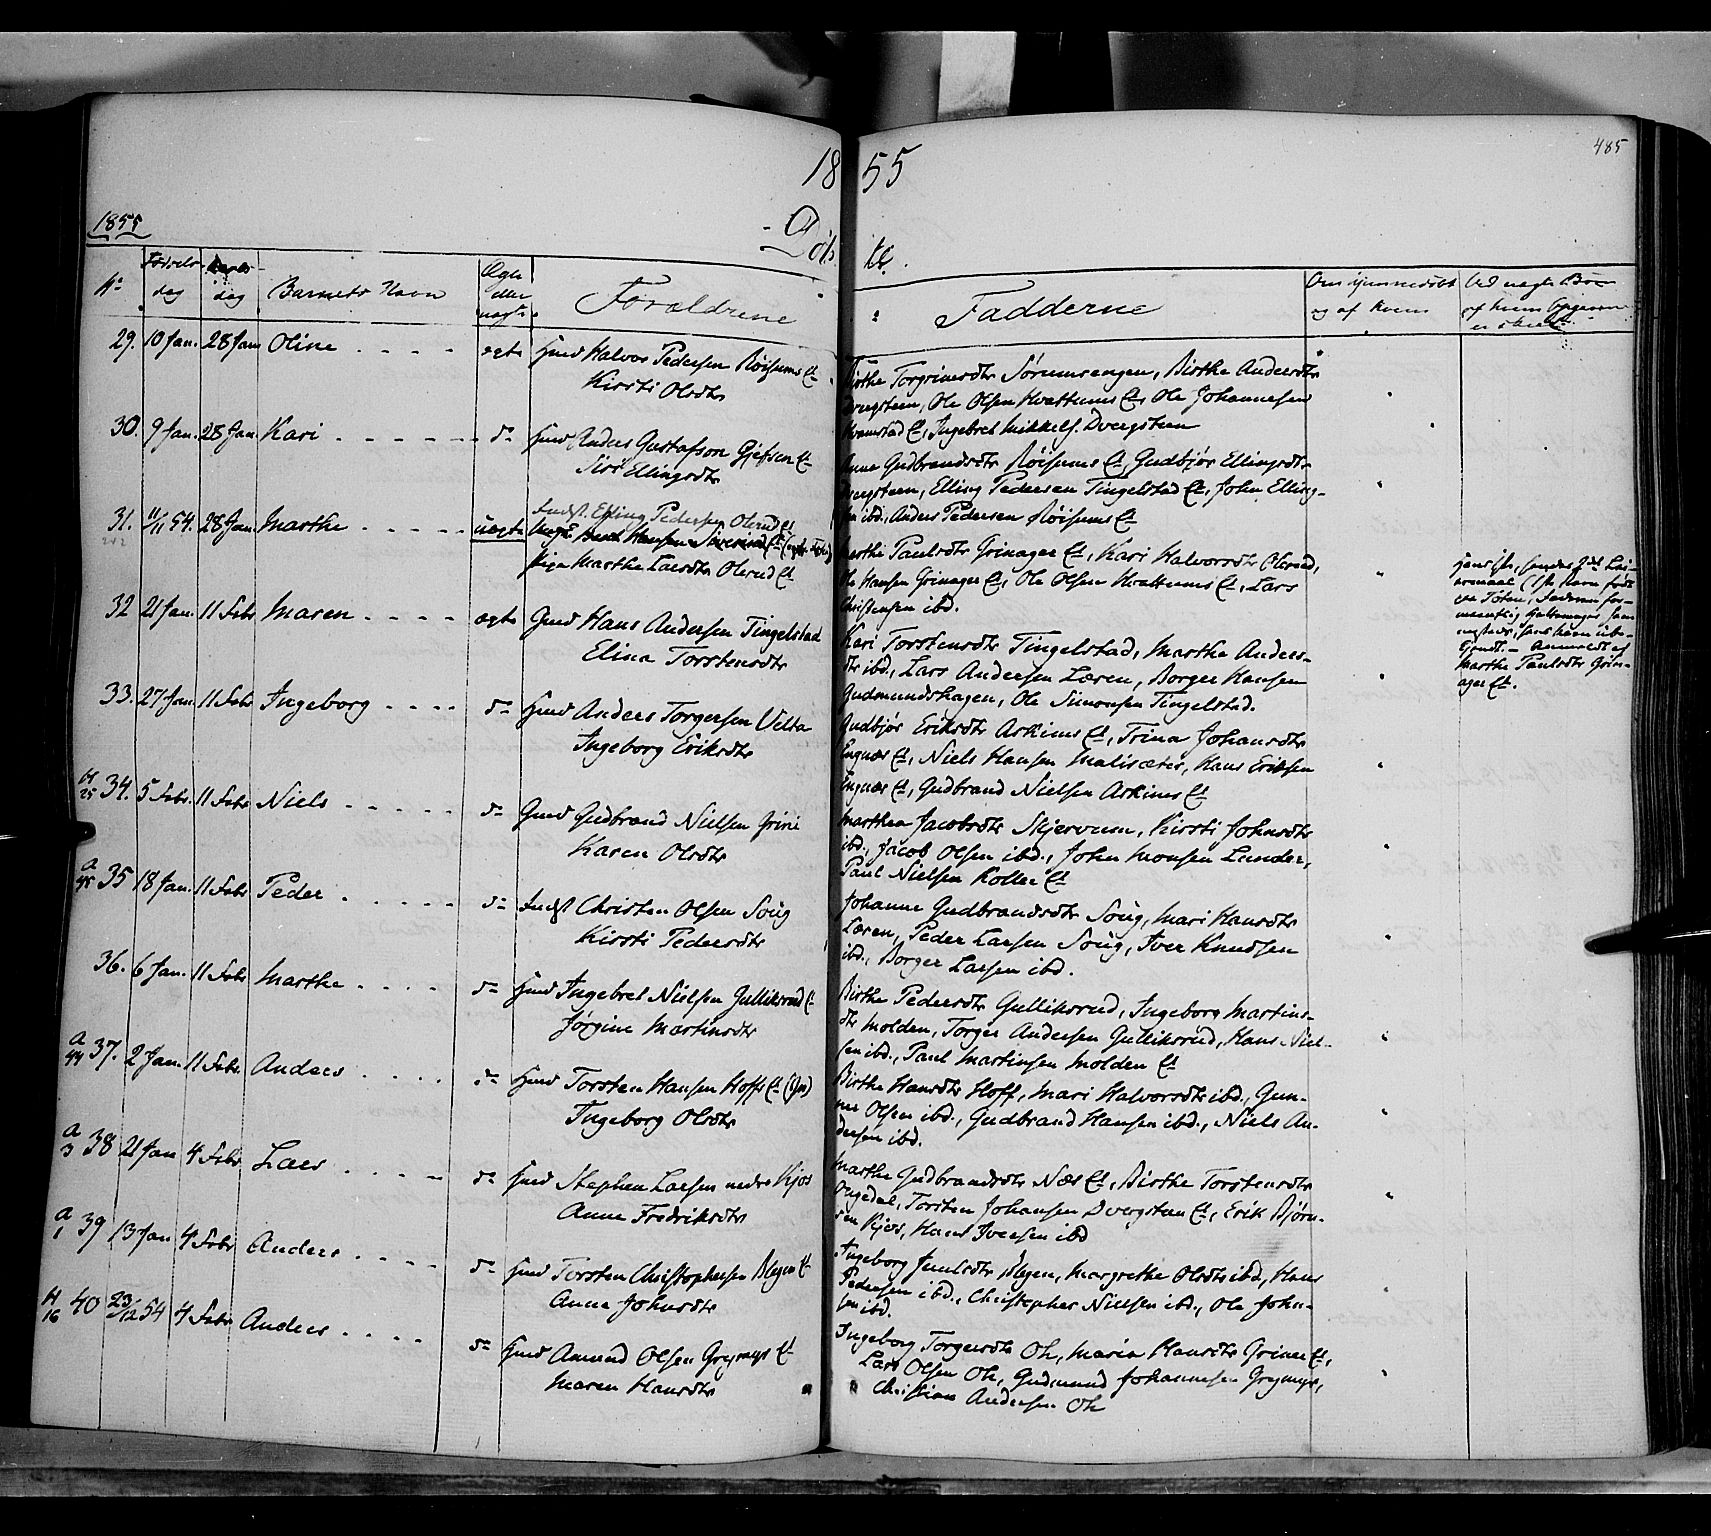 485
18 55
1855
Døbte.
No
Fødsels-
dag
dag
Barnets Navn
Ægte
eller
uægte
Forældrene
Fadderne
Om hjemmedøbt
og af hvem
Ved uægte Børn
af hvem Opgaven
er skeet
29. 10 Jan. 28 Jan Oline ægte Hmd Halvor Pedersen Røisums Et
Kirsti Olsdtr
Birthe Torgrimsdtr Sørumsengen, Birthe Andersdtr
Dvergsteen, Ole Olsen Hvattums Et, Ole Johannesen
Hvamstad Et, Ingebret Mikkels. Dvergsteen
30. 9 Jan. 28 Jan. Kari do Hmd Anders Gustafson Gjefsen Et
Siri Ellingsdtr
Anne Gudbrandsdtr Røisums Et, Gudbjør Ellingsdtr
Dvergsteen, Elling Pedersen Tingelstad Et, John Elling-
sen ibd., Anders Pedersen Røisums Et
31. 11/11 54. 28 Jan. Marthe uægte
Indst. Elling Pedersen Olerud Et
Pige Marthe Larsdtr Olerud Et
Marthe Paulsdtr Grinager Et, Kari Halvorsdtr Olerud,
Ole Hansen Grinager Et, Ole Olsen Hvattums Et, Lars
Christensen ibd.
Marthe Paulsdtr Grin-
ager Et.
32 21 Jan. 11 Febr Maren ægte Gmd Hans Andersen Tingelstad
Elina Torstensdtr
Kari Torstensdtr Tingelstad, Marthe Anders-
dtr ibd., Lars Andersen Læren, Borger Hansen
Gudmundshagen, Ole Simonsen Tingelstad.
33. 27 Jan. 11 Febr Ingeborg do Hmd Anders Torgersen Velta
Ingeborg Eriksdtr
Gudbjør Eriksdtr Askims Et, Trina Johansdtr
Engnæs Et, Niels Hansen Malisæter, Hans Eriksen
Engnæs Et, Gudbrand Nielsen Askims Et
H
25 34. 5 Febr. 11 Febr Niels do Gmd Gudbrand Nielsen Grini
Karen Olsdtr
Marthea Jacobsdtr Skjervum, Kirsti Johnsdtr
ibd., Jacob Olsen ibd., John Monsen Lunder,
Paul Nielsen Koller Et
A
45 35 18 Jan. 11 Febr Peder do Indst Christen Olsen Soug
Kirsti Pedersdtr
Johanne Gudbrandsdtr Soug, Mari Hansdtr
Læren, Peder Larsen Soug, Iver Knudsen
ibd., Borger Larsen ibd.
36. 6 Jan. 11 Febr Marthe do Hmd Ingebret Nielsen Gulliksrud Et
Jørgine Martinsdtr
Birthe Pedersdtr Gulliksrud, Ingeborg Martins-
dtr Molden, Torger Andersen Gulliksrud, Hans Niel-
sen ibd., Paul Martinsen Molden Et
A
44 37. 2 Jan. 11 Febr Anders do Hmd Torsten Hansen Hoffs Et
Ingeborg Olsdtr
Birthe Hansdtr Hoff, Mari Halvorsdtr ibd., Gun-
ner Olsen ibd., Gudbrand Hansen ibd., Niels An-
dersen ibd.
A
3 38 21 Jan 4 Febr Lars do Hmd Stephen Larsen nedre Kjos
Anne Fredriksdtr
Marthe Gudbrandsdtr Næs Et, Birthe Torstensdtr
Ongedal, Torsten Johansen Dvergsteen Et, Erik Bjørn-
sen Kjos, Hans Iversen ibd
A
1 39 13 Jan 4 Febr Anders do Hmd Torsten Christophersen Blegen Et
Anne Johnsdtr
Ingeborg Juulsdtr Blegen, Margrethe Olsdtr ibd., Hans
Pedersen ibd., Christopher Nielsen ibd., Ole John-
sen ibd.
H
16 40 23/12 54 4 Febr Anders do Hmd Amund Olsen Grymyr Et
Maren Hansdtr
Ingeborg Torgersdtr Oh, Maria Hansdtr Grinar Et,
Lars Olsen Oh, Gudmund Johannesen Grymyr,
Christian Andersen Oh